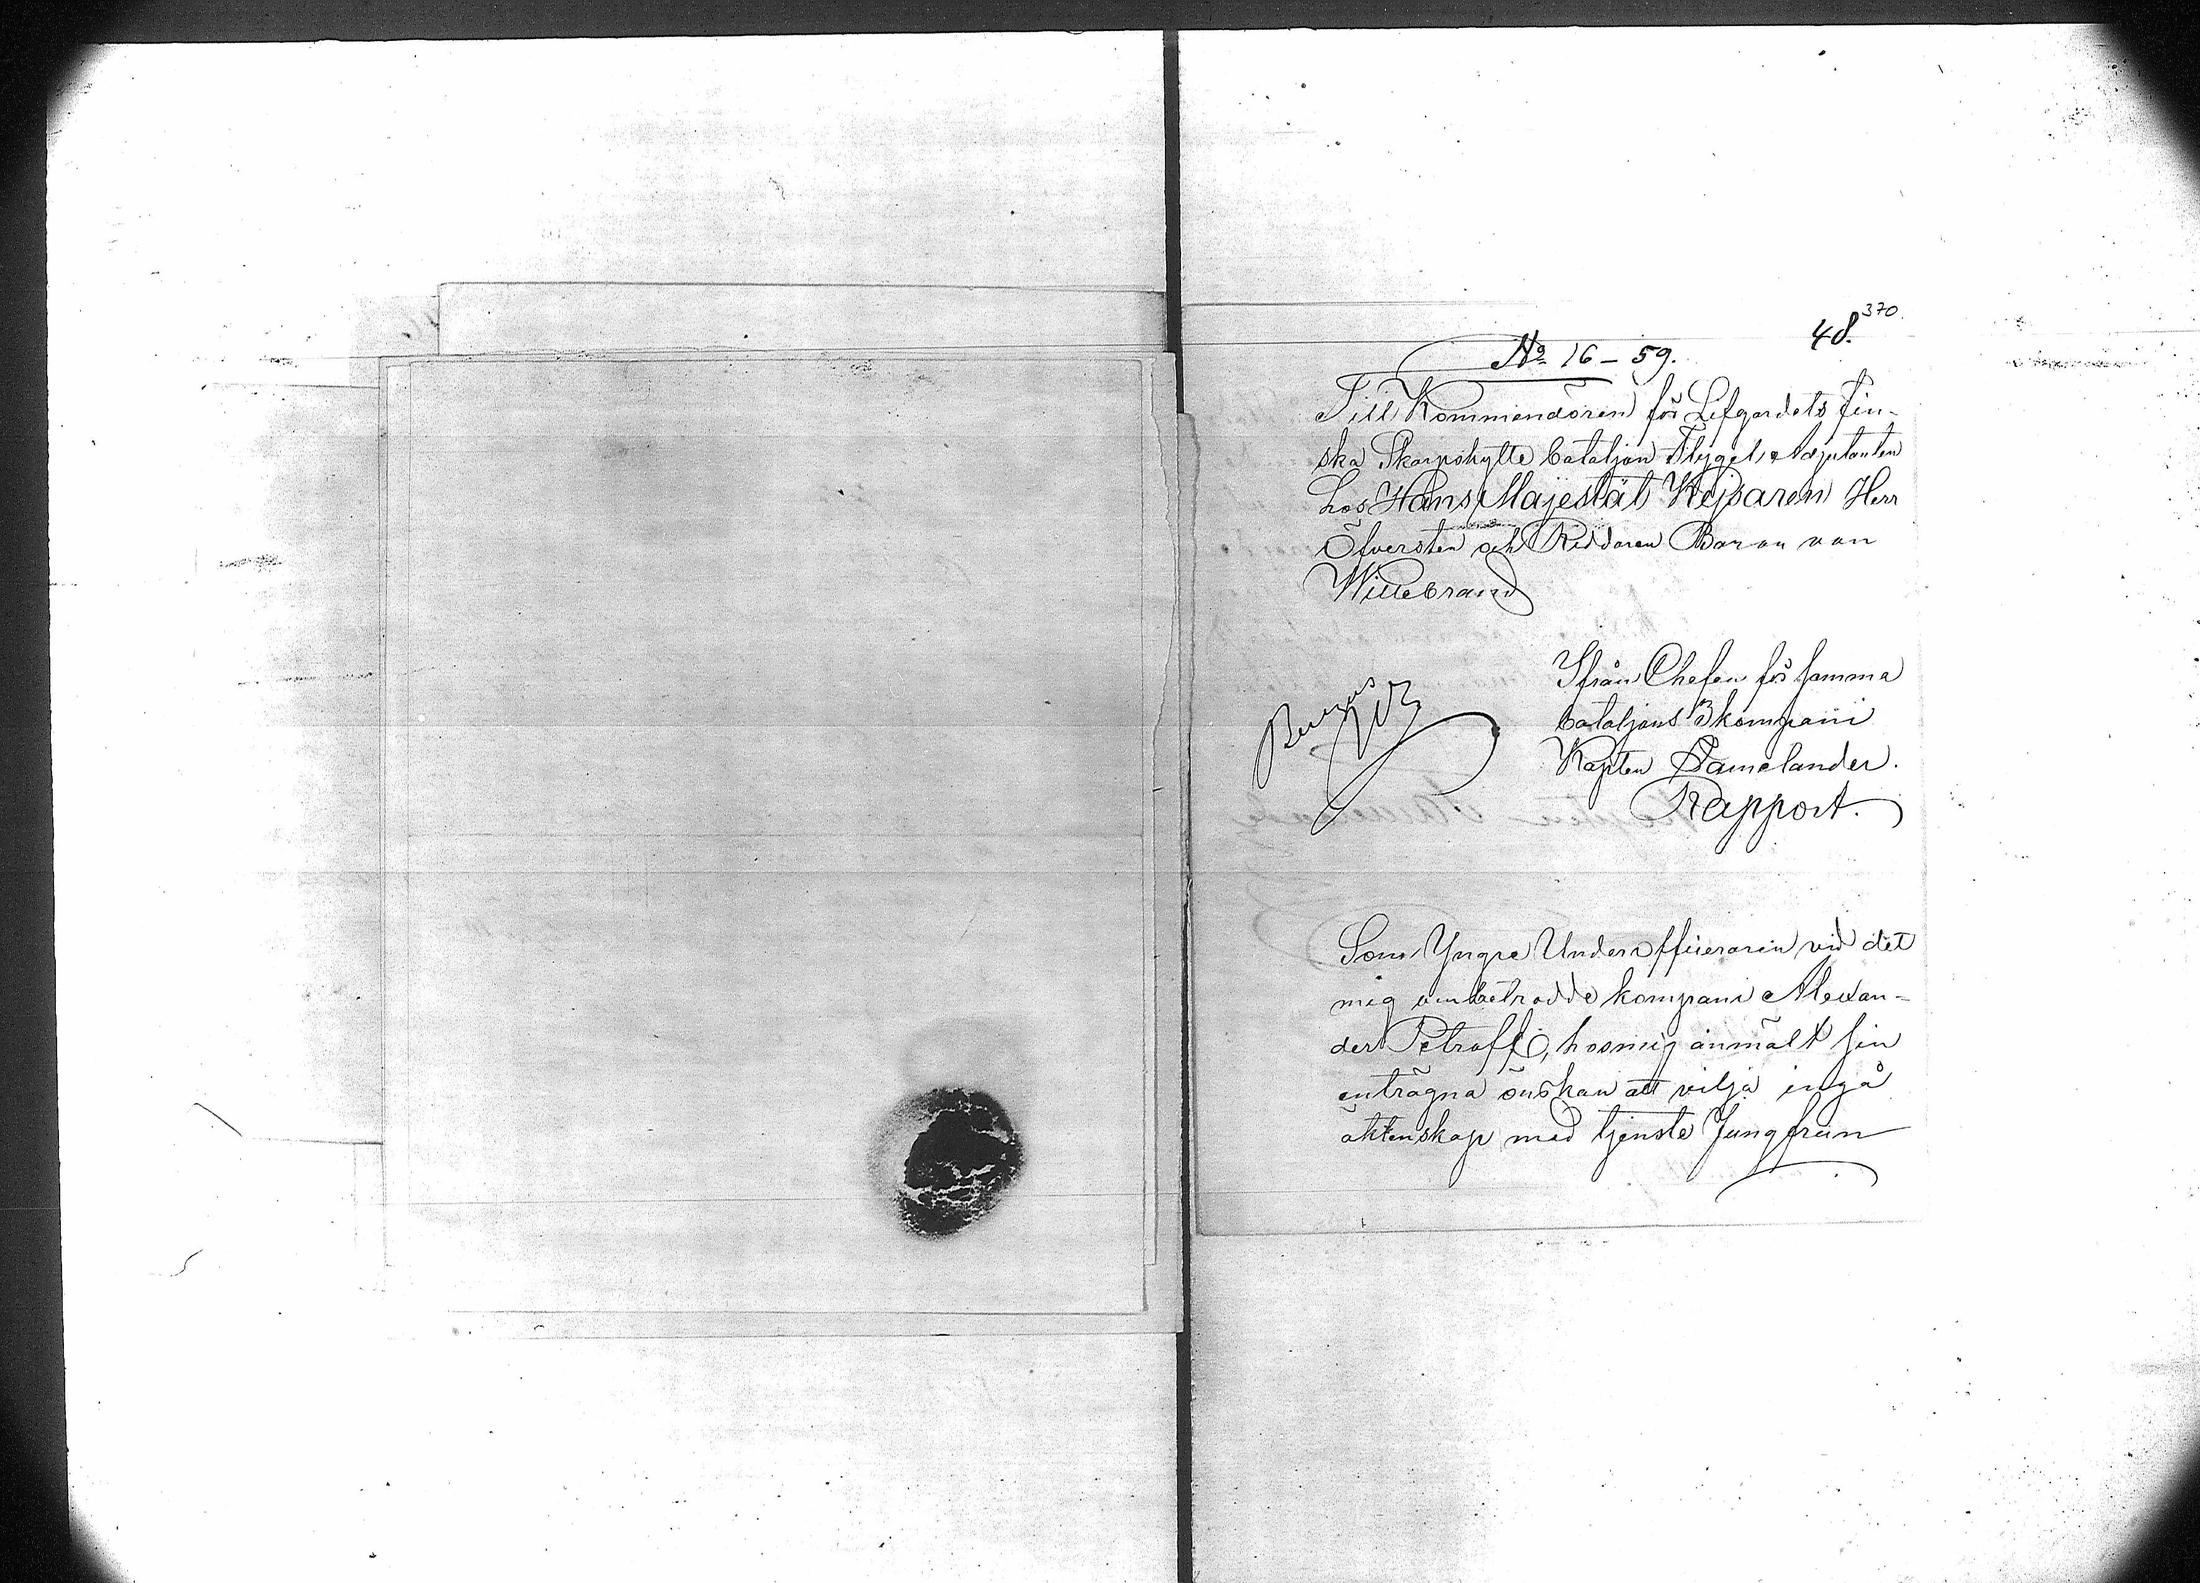 370
48.
No 16 – 59.
Till Kommendören för Lifgardets fin-
ska Skarpskytte bataljon Flygel Adjutanten
hos Hans Majestät Kejsaren Herr
Öfversten och Riddaren Baron von
Willebrand
Ifrån Chefen för samma
bataljons 3 kompani
Kapten Ramelander.
Rapport.
Som Yngre Underofficeraren vid det
mig anbetrodde kompani Alexan-
der Petroff, hos mig anmält sin
enträgna önskan att vilja ingå
äktenskap med tjenste Jungfrun